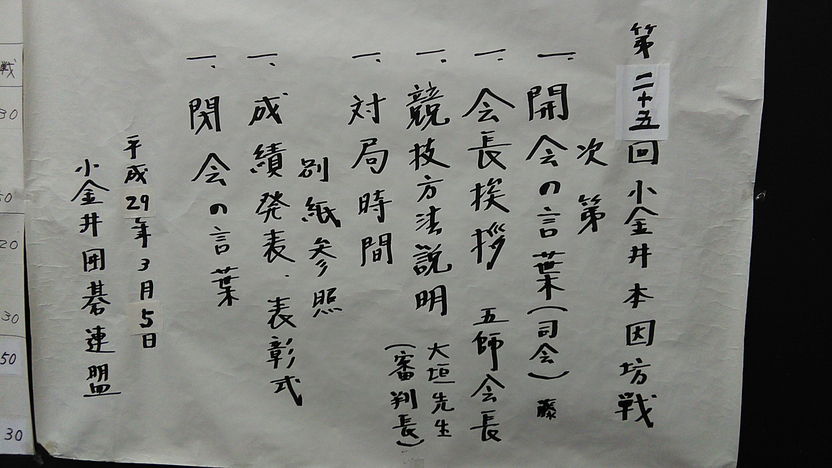 第二十五回小金井本因坊戦
次第
一、開会の言葉(司会)藤
一、会長挨拶 五師会長
一、競技方法説明 大垣先生
(審判長)
一、対局時間
別紙参照
一、成績発表、表彰式
一、閉会の言葉
平成29年3月5日
小金井囲碁連盟
戦
30
50
20
30
50
30